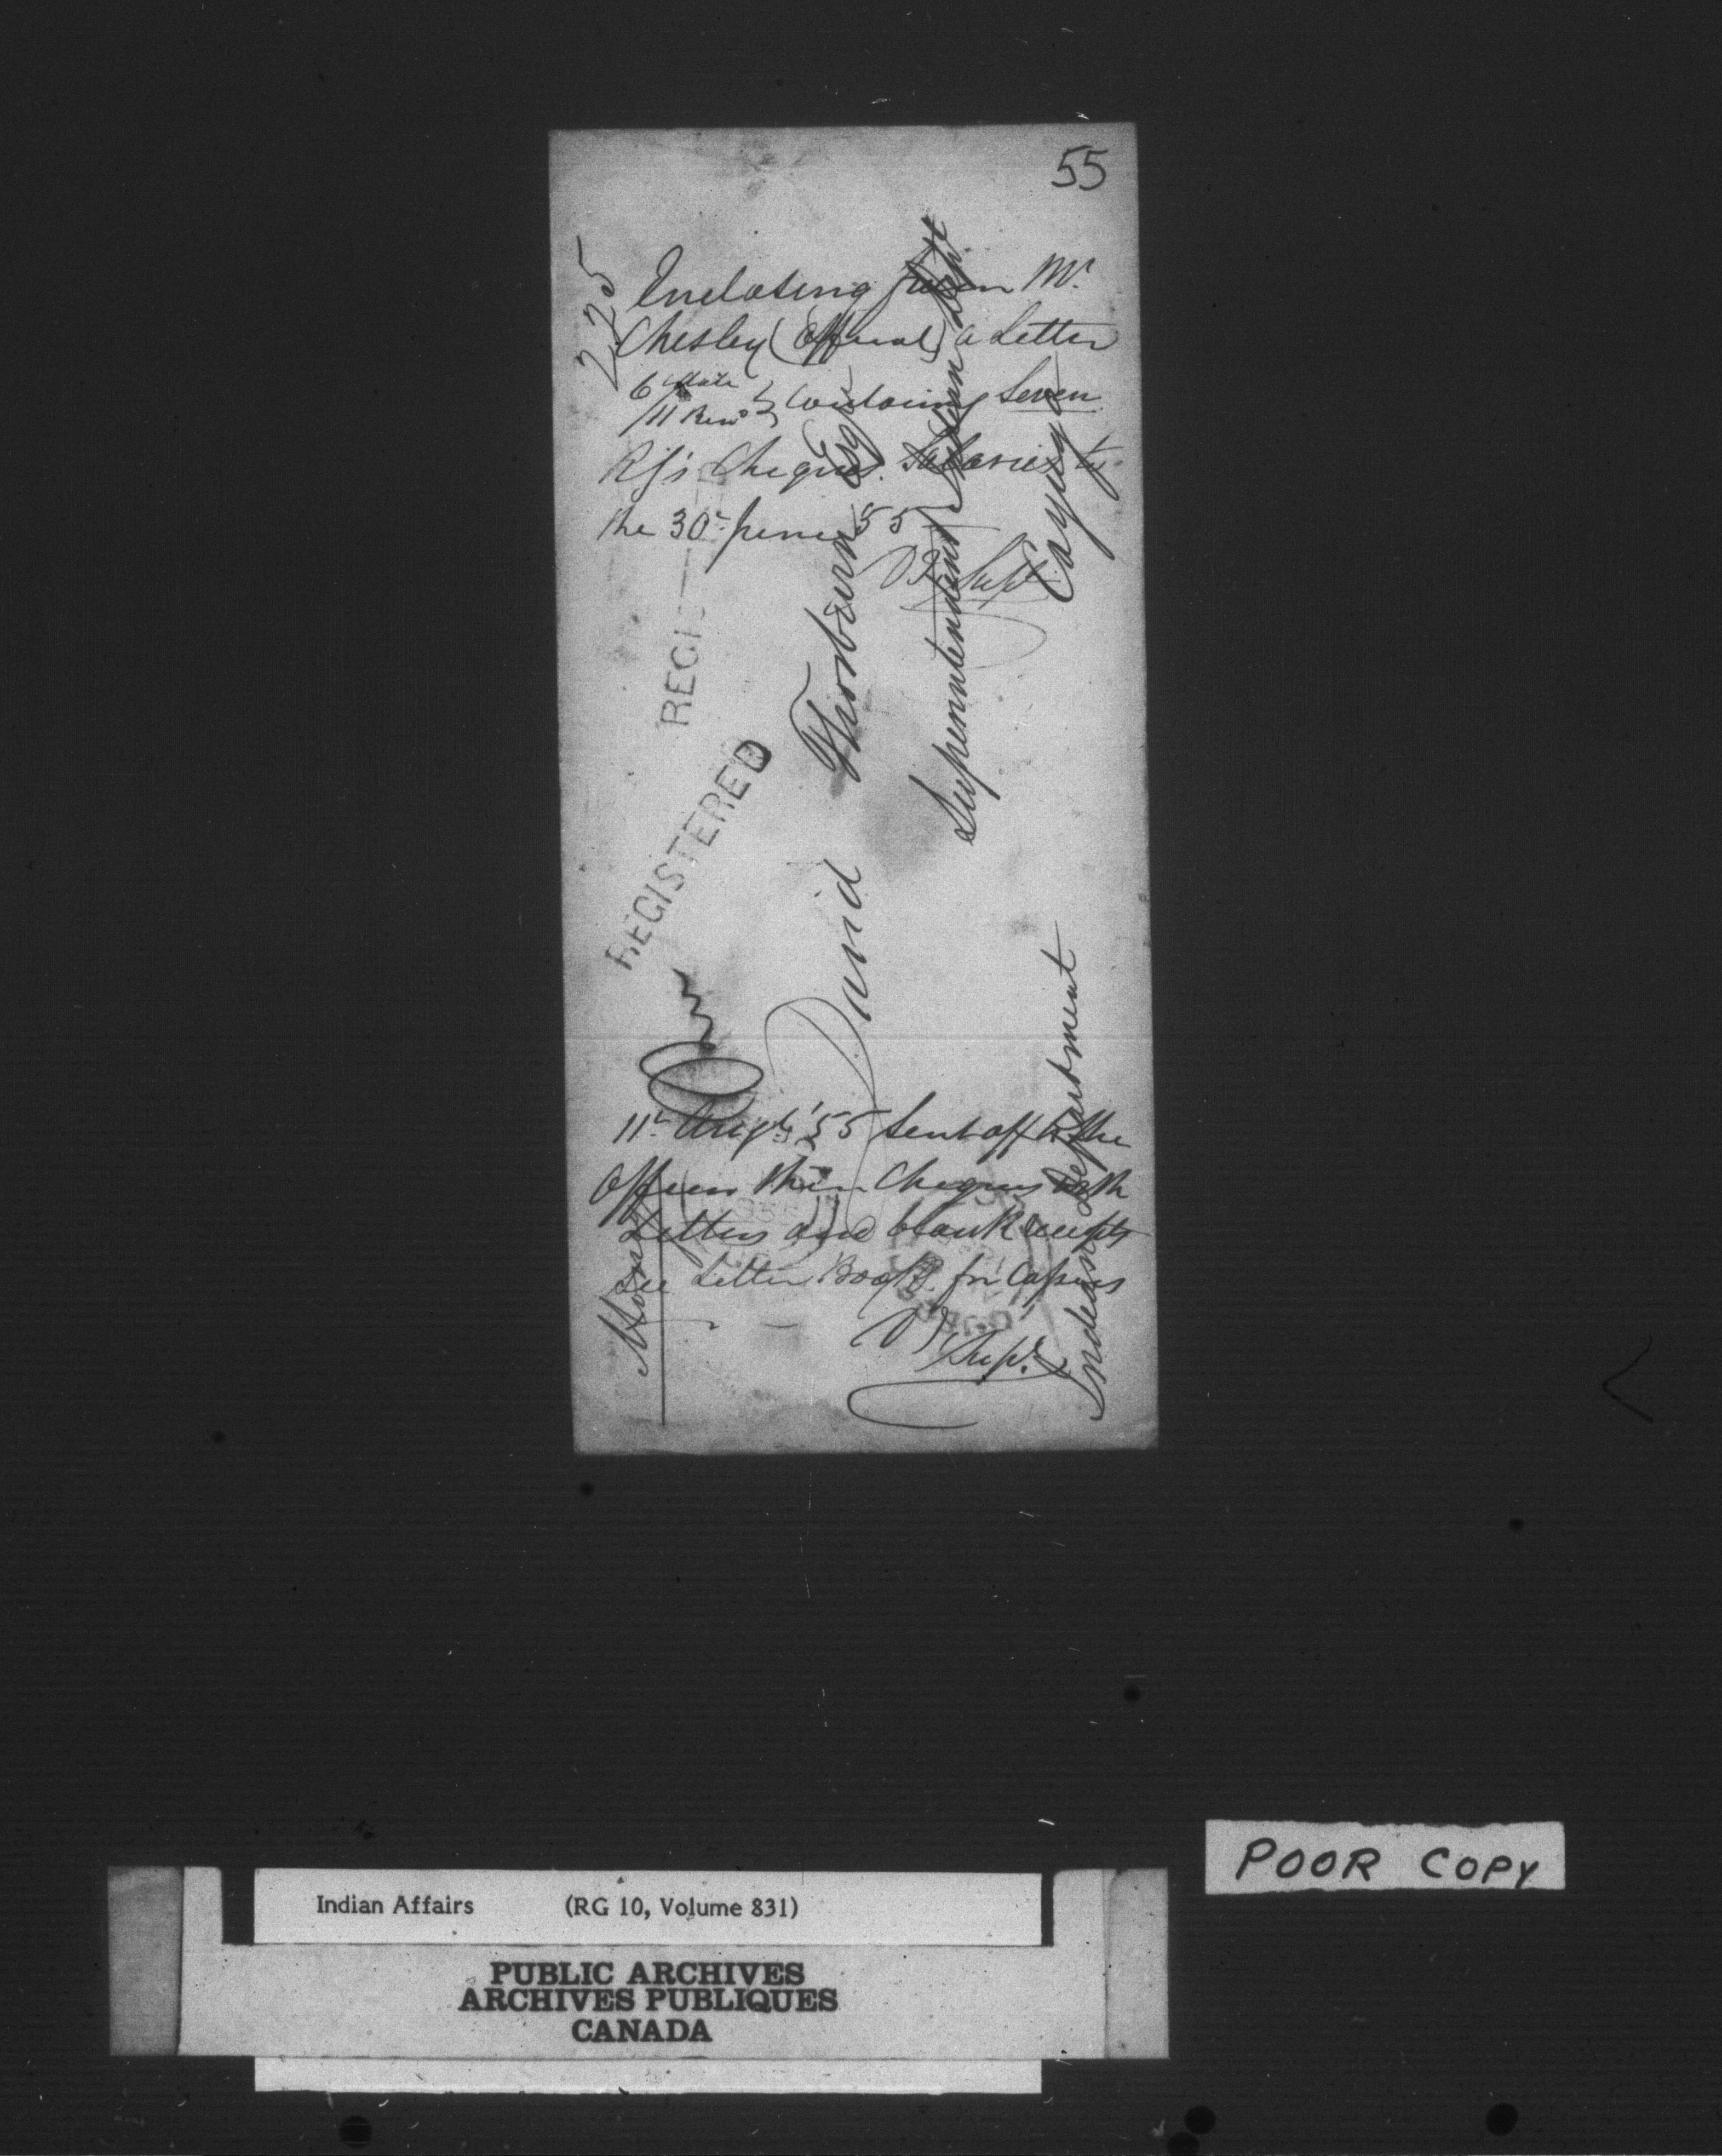 55
225
Inclosing from Mr.
Chesley (Official) a Letter
6th date
11 Recd } Containing Seven
Rg's Cheques. Salaries to
the 30th June 55
DT Supt
REGISTERED
REGIS
David Thorburn Esqr
Superintendent Indian Dept
Cayuga
11th Augt '55 Sent off to the
Officers their Cheques with
Letters and blank receipts
see Letter Book for Copies
DT
Supt.
Money
Indian Department
POOR COPY
Indian Affairs (RG 10, Volume 831)
PUBLIC ARCHIVES
ARCHIVES PUBLIQUES
CANADA